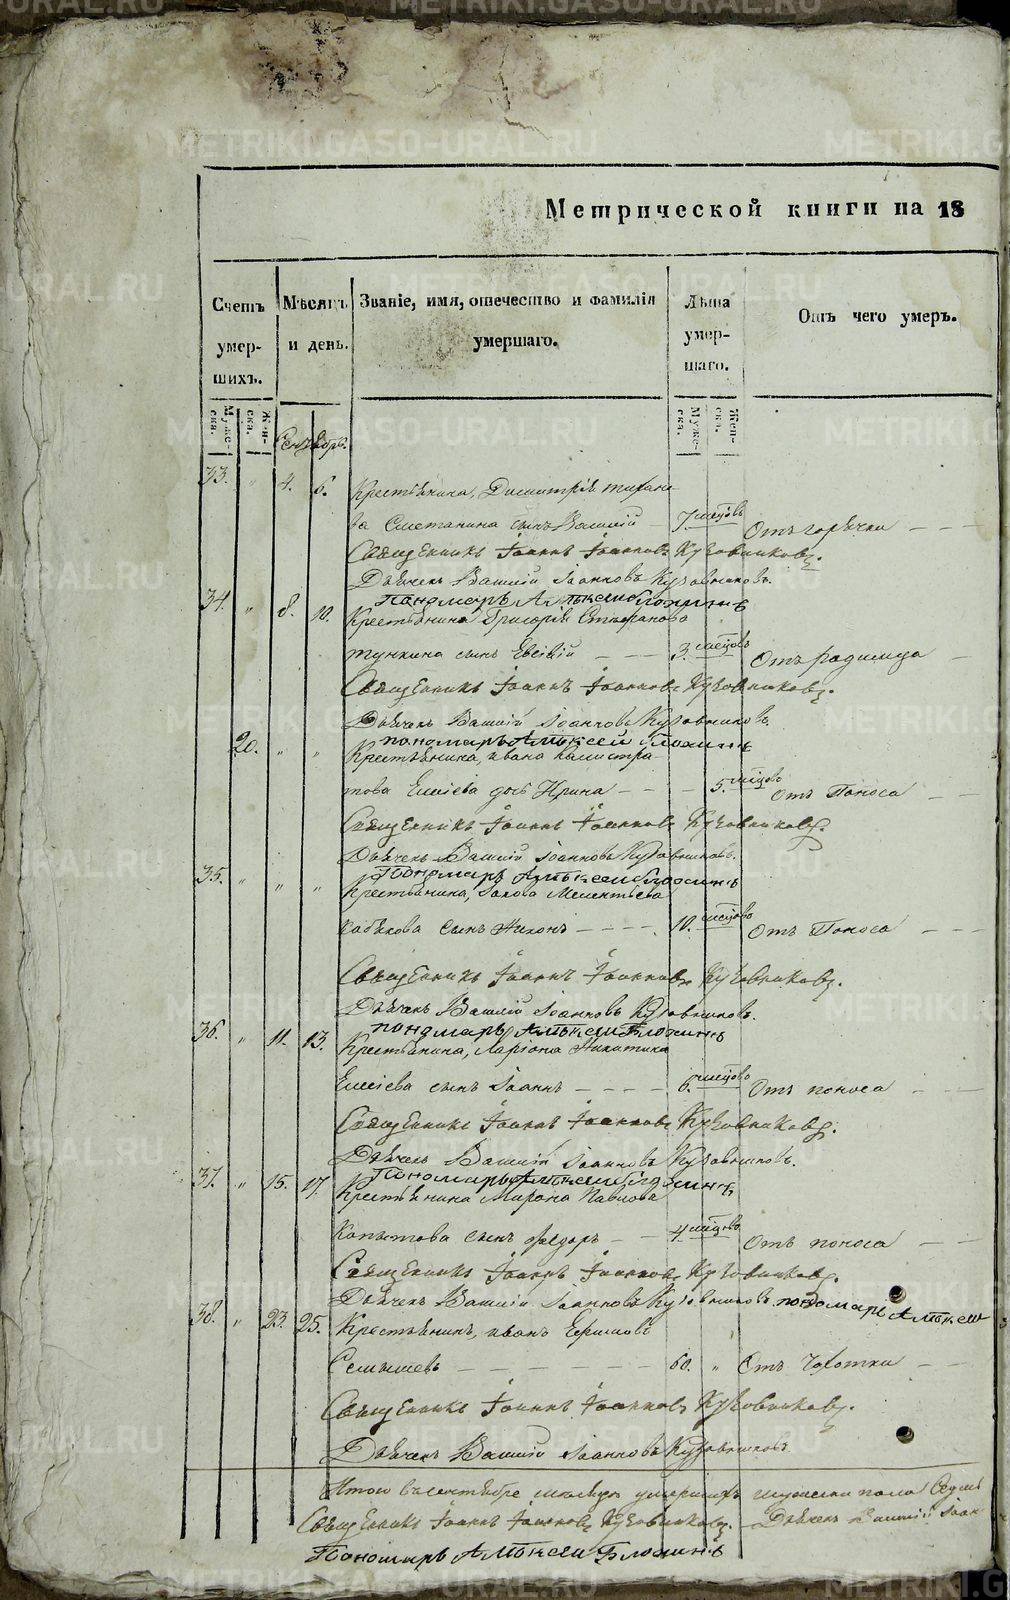 Метрической книги на 18
Счетъ умер- шихъ.
Мѣсяцъ и день.
Званіе, имя, отечество и фамилія умершаго.
Лѣта умер- шаго.
Отъ чего умеръ.
Муже- ска.
Жен- ска.
Муже- ска.
Жен- ска.
33. " 4. 6. Крестьянина, Димитрія
ва Сметанина сынъ Василій 7. мѣсцовъ Отъ горячки
Священникъ Іоаннъ Іоанновъ Кузовниковъ.
Дьячекъ Василій Іоанновъ Кузовниковъ.
Пономарь Алѣксей Бложинъ
34. " 8. 10. Крестьянина Григорія Стефанова
сынъ Евсевій 3. мѣсцовъ Отъ родимца
Священникъ Іоаннъ Іоанновъ Кузовниковъ.
Дьячекъ Василій Іоанновъ Кузовниковъ.
пономарь Алѣксей Бложинъ
20. " " Крестьянина, Ивана Калистра-
това Елисѣева дочь Ирина 5. мѣсцовъ Отъ Поноса
Священникъ Іоаннъ Іоанновъ Кузовниковъ.
Дьячекъ Василій Іоанновъ Кузовниковъ.
Пономарь Алѣксей Бложинъ
35. " " " Крестьянина, Якова Мелентьева
сынъ Никонъ 10. мѣсцовъ Отъ Поноса
Священникъ Іоаннъ Іоанновъ Кузовниковъ.
Дьячекъ Василій Іоанновъ Кузовниковъ.
пономарь Алѣксей Бложинъ
36. " 11. 13. Крестьянина, Ларіона Никитина
Елисѣева сынъ Іоаннъ 6. мѣсцовъ Отъ поноса
Священникъ Іоаннъ Іоанновъ Кузовниковъ.
Дьячекъ Василій Іоанновъ Кузовниковъ.
Пономарь Алѣксей Бложинъ
37. " 15. 17. Крестьянина Мирона Павлова
Копытова сынъ Ѳедоръ 4. мѣсцовъ Отъ поноса
Священникъ Іоаннъ Іоанновъ Кузовниковъ.
Дьячекъ Василій Іоанновъ Кузовниковъ. пономарь Алѣксей
38. " 23. 25. Крестьянинъ, Иванъ
60. " Отъ Чахотки
Священникъ Іоаннъ Іоанновъ Кузовниковъ.
Дьячекъ Василій Іоанновъ Кузовниковъ
Итого въ сентябре месяце умершихъ мужеска пола седмь
Священникъ Іоаннъ Іоанновъ Кузовниковъ. Дьячекъ Василій Іоан
Пономарь Алѣксей Бложинъ
METRIKI.GASO-URAL.RU